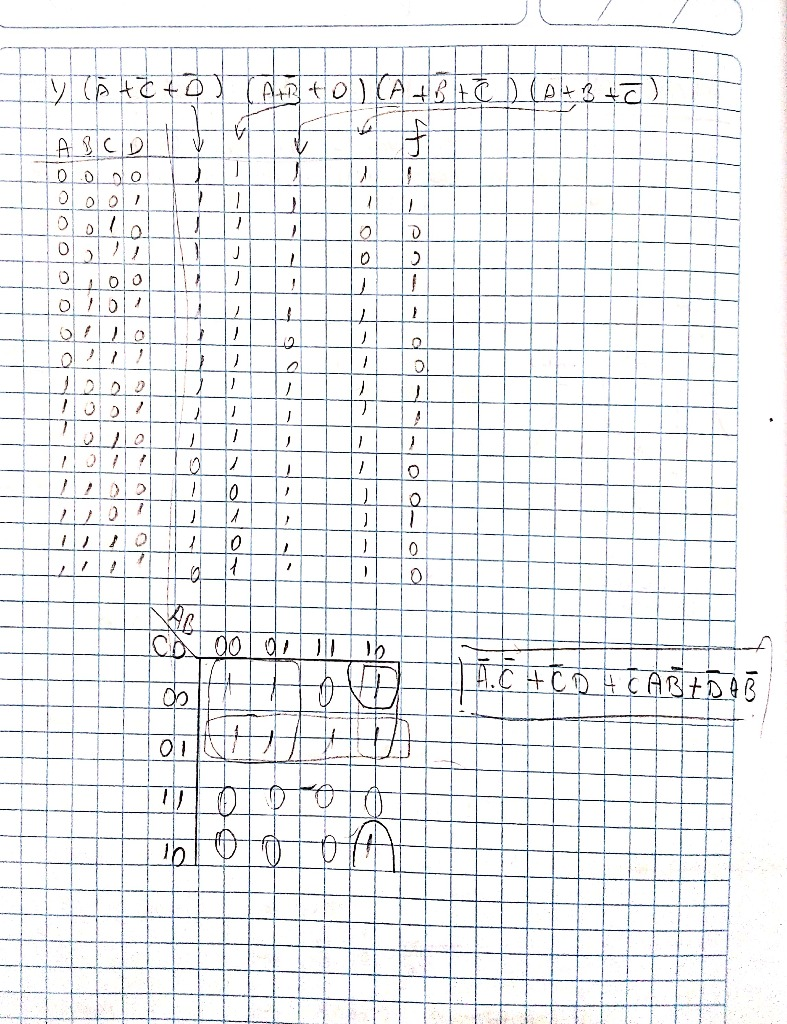 y (Ā + C̄ + D̄) (Ā+B̄ + D) (A + B̄ + C̄) (A + B + C̄)
A B C D f
0 0 0 0 1 1 1 1 1
0 0 0 1 1 1 1 1 1
0 0 1 0 1 1 1 0 0
0 0 1 1 1 1 1 0 0
0 1 0 0 1 1 1 1 1
0 1 0 1 1 1 1 1 1
0 1 1 0 1 1 0 1 0
0 1 1 1 1 1 0 1 0
1 0 0 0 1 1 1 1 1
1 0 0 1 1 1 1 1 1
1 0 1 0 1 1 1 1 1
1 0 1 1 0 1 1 1 0
1 1 0 0 1 0 1 1 0
1 1 0 1 1 1 1 1 1
1 1 1 0 1 0 1 1 0
1 1 1 1 0 1 1 1 0
AB
CD 00 01 11 10
00 1 1 0 1
01 1 1 1 1
11 0 0 0 0
10 0 0 0 1
Ā.C̄ + C̄D + C̄AB̄ + D̄AB̄